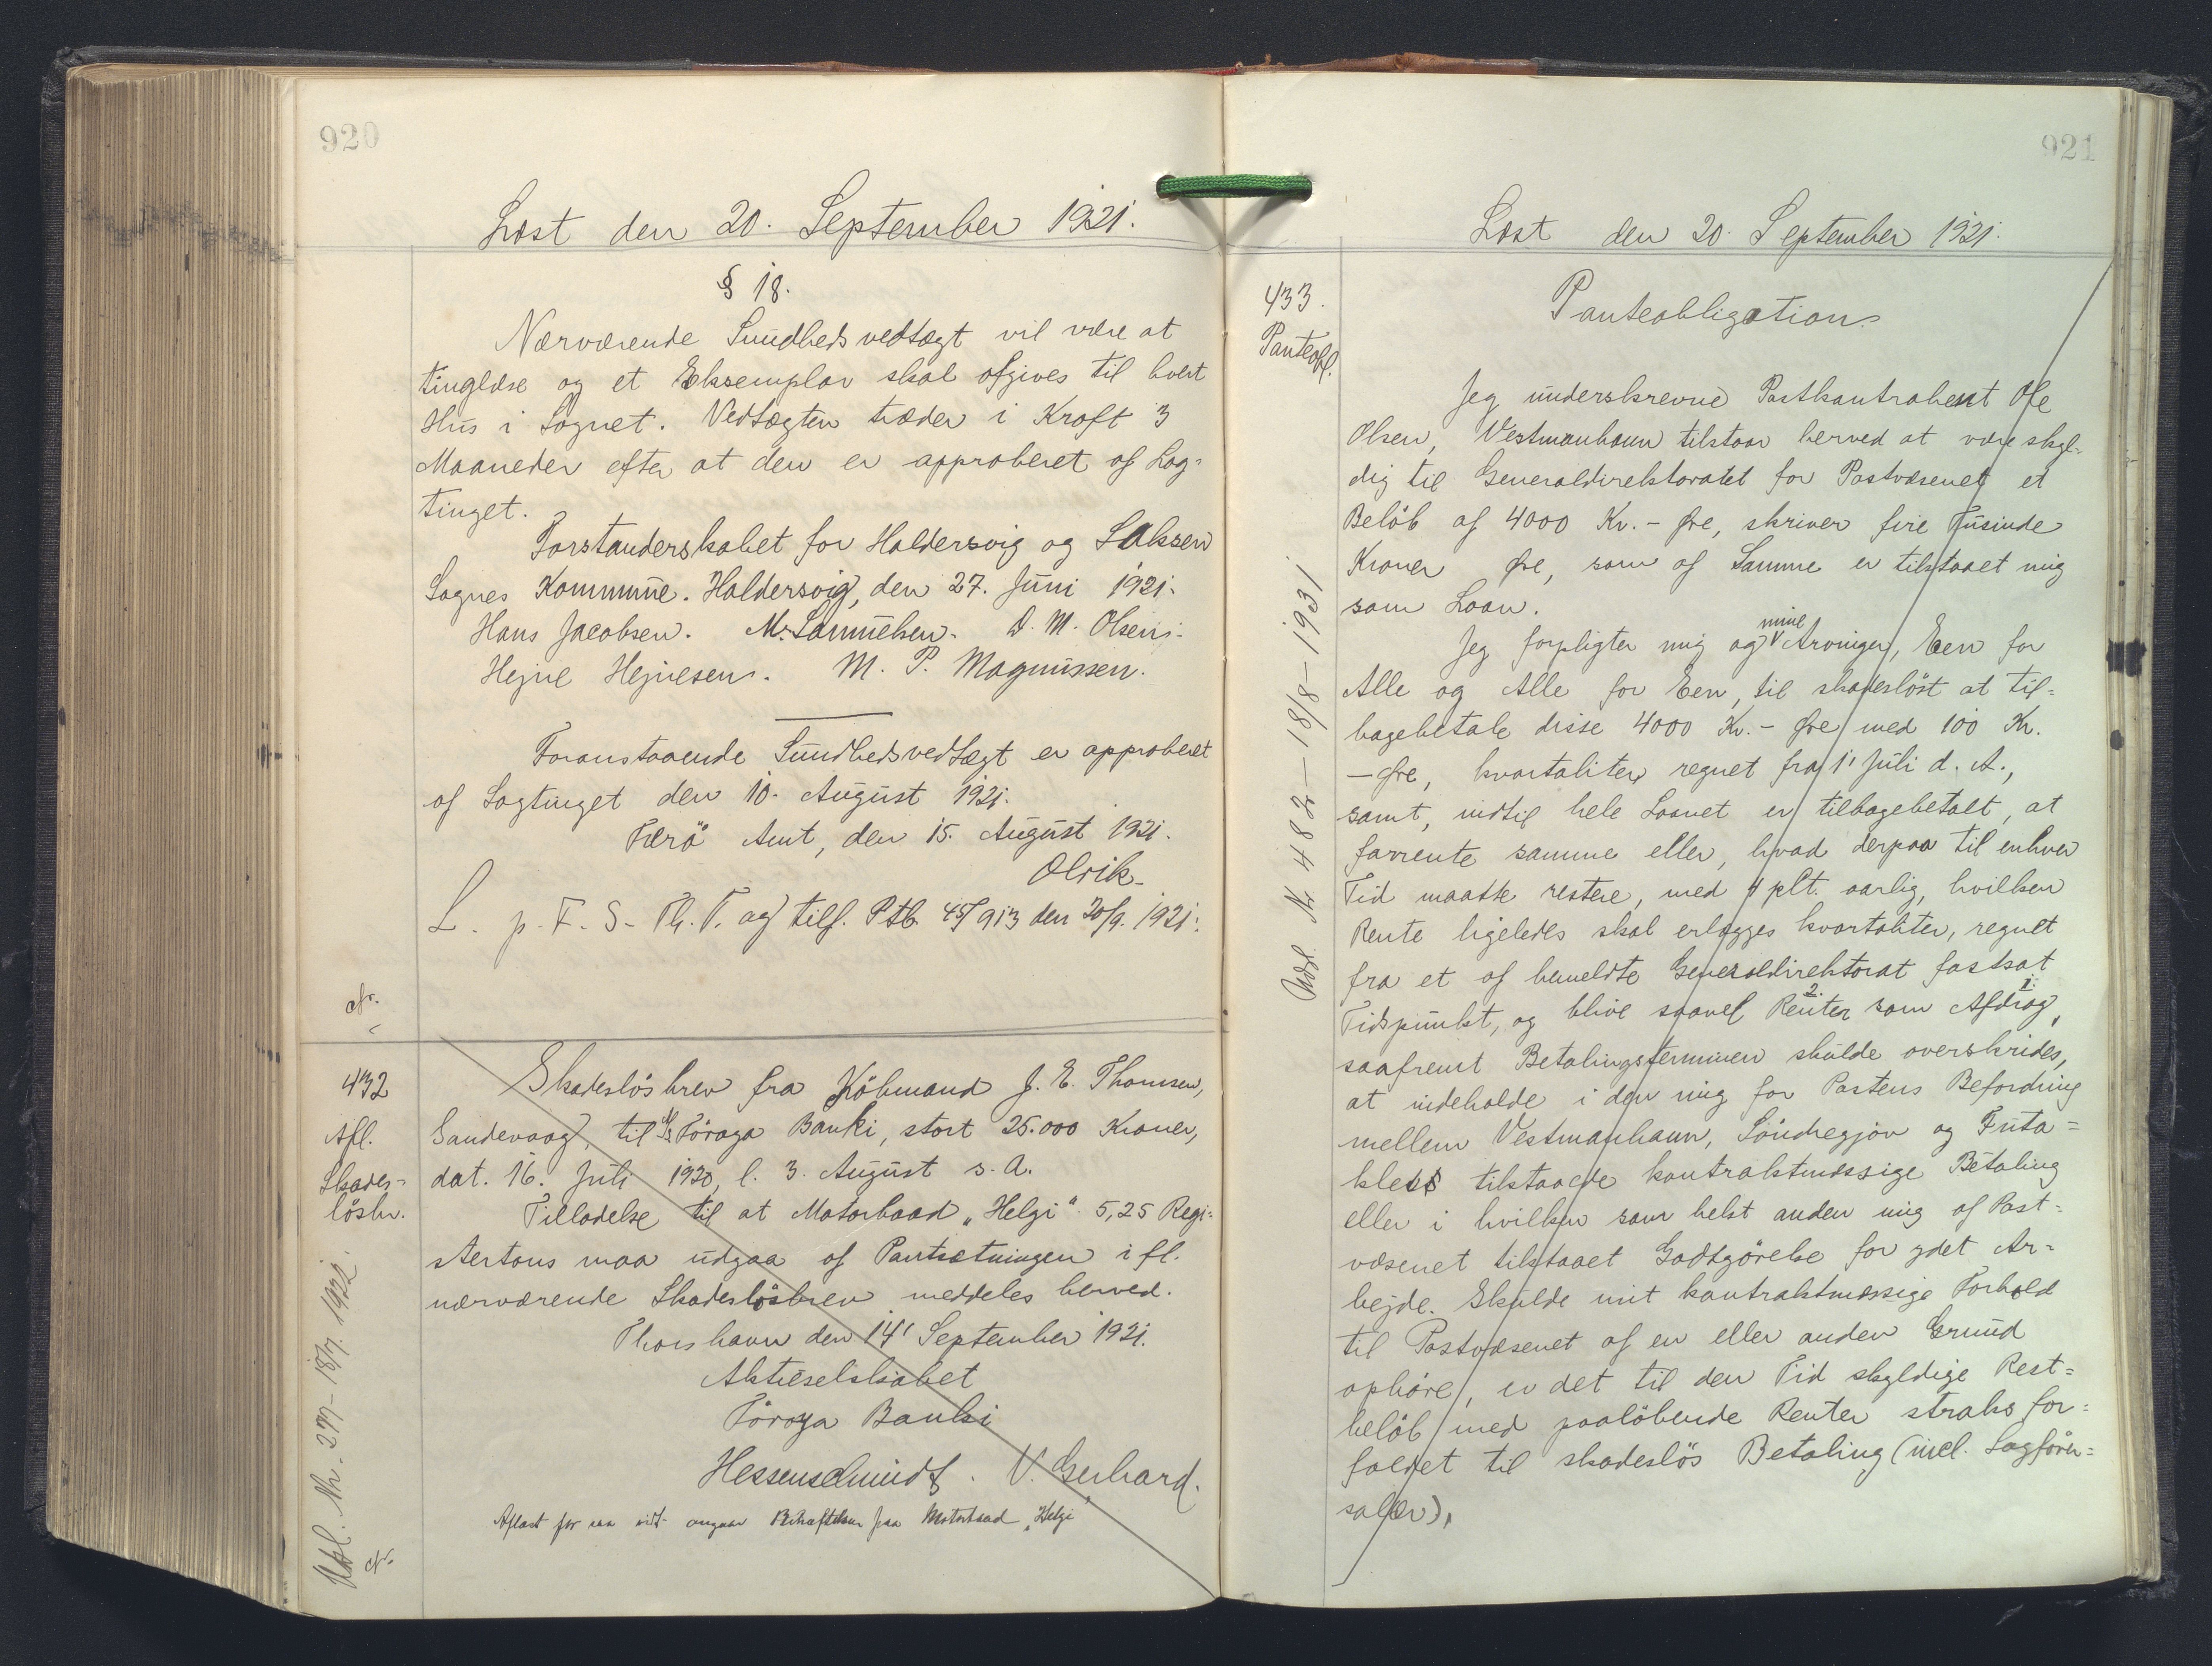 920
Læst den 20. September 1921.
§ 18.
Nærværende Sundhedsvedtægt vil være at
tinglæse og et Eksemplar skal afgives til hvert
Hus i Sognet. Vedtægten træder i Kraft 3
Maaneder efter at den er approberet af Lag=
tinget.
Forstanderskabet for Haldersvig og Saksen
Sognes Kommune. Haldersvig, den 27. Juni 1921.
Hans Jacobsen. M. Samuelsen. D. M. Olsen.
Hejne Hejnesen. M. P. Magnussen.
Foranstaaende Sundhedsvedtægt er approberet
af Lagtinget den 10. August 1921.
Færö Amt, den 15. August 1921.
Olrik.
L. p. F. S. Th. T. og tilf. Ptb. 45/913 den 20/9. 1921.
432
Afl.
Skades=
løsbr.
Skadesløsbrev fra Köbmand J. E. Thomsen,
Sandevaag, til A/S Föroya Banki, stort 25.000 Kroner,
dat. 16. Juli 1920, l. 3. August s. A.
Tilladelse til at Motorbaad „Helgi“ 5,25 Regi=
stertons maa udgaa af Pantsætningen ifl.
nærværende Skadesløsbrev meddeles herved.
Thorshavn den 14' September 1921.
Aktieselskabet
Föroya Banki
Hessenschmidt. V. Gerhard.
Aflæst for saa vidt angaar Behæftelsen paa Motorbaad „Helgi“
Udsl. Nr. 277 - 18/7. 1922.
921
Læst den 20. September 1921.
433.
Panteobl.
Panteobligation
Jeg underskrevne Postkontrahent Ole
Olsen, Vestmanhavn tilstaar herved at være skyl=
dig til Generaldirektoratet for Postvæsenet et
Beløb af 4000 Kr. - Øre, skriver fire Tusinde
Kroner Øre, som af Samme er tilstaaet mig
som Laan.
Jeg forpligter mig og mine Arvinger, Een for
Alle og Alle for Een, til skadesløst at til=
bagebetale disse 4000 Kr. - Øre med 100 Kr.
- Øre, kvartaliter, regnet fra 1' Juli d. A.,
samt, indtil hele Laanet er tilbagebetalt, at
forrente samme eller, hvad derpaa til enhver
Tid maatte restere, med 4 pCt. aarlig, hvilken
Rente ligeledes skal erlægges kvartaliter, regnet
fra et af bemeldte Generaldirektorat fastsat
Tidspunkt, og blive saavel Renter 2. som Afdrag 1.,
saafremt Betalingsterminen skulde overskrides,
at indeholde i den mig for Postens Befordring
mellem Vestmanhavn, Söndregjov og Futa=
klett tilstaaede kontraktmæssige Betaling
eller i hvilken som helst anden mig af Post=
væsenet tilstaaet Godtgörelse for ydet Ar=
bejde. Skulde mit kontraktmæssige Forhold
til Postvæsenet af en eller anden Grund
ophöre, er det til den Tid skyldige Rest=
beløb med paaløbende Renter straks for=
faldet til skadesløs Betaling (incl. Sagfører=
salær),
Udsl. Nr 482 - 18/8 - 1931